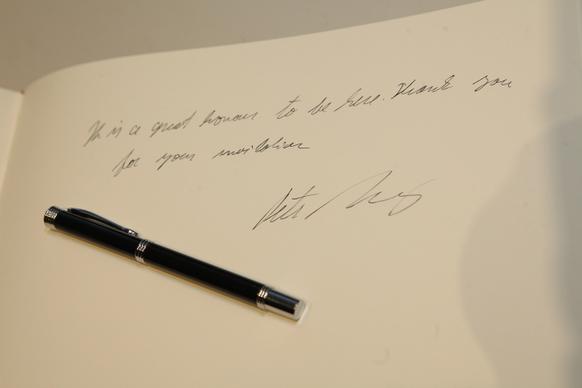 It is a great honour to be here. Thank you
for your invitation
Petr